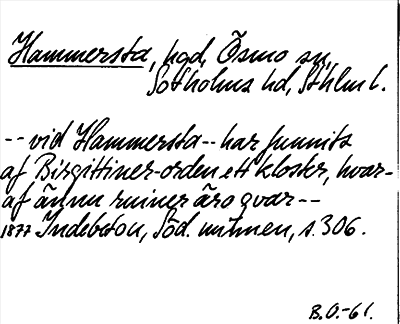 Hammersta, hgd, Ösmo sn,
Sotholms hd, Sthlm l.
-- vid Hammersta -- har funnits
af Birgittiner-orden ett kloster, hvar-
af ännu ruiner äro qvar --
1877 Indebetou, Söd. minnen, s. 306.
B.O.-61.